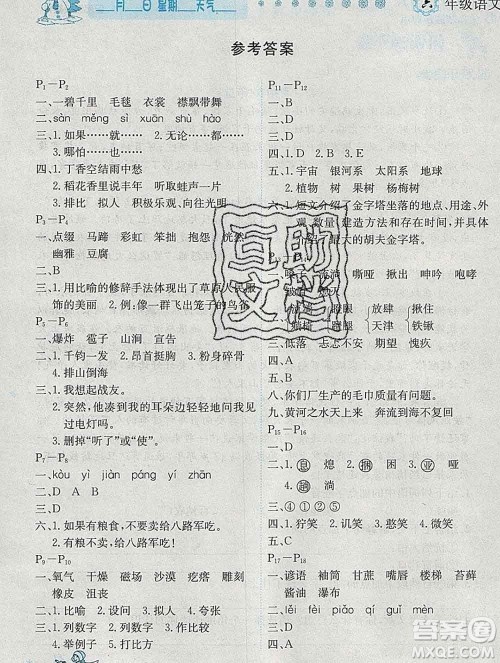 月 日 星期 天气
六年级语文
参考答案
P1－P2
一、一碧千里 毛毯 衣裳 襟飘带舞
二、sàn měng sì xuān shù hào
三、1.如果……就…… 2.无论……都……
3.哪怕……也……
四、1.丁香空结雨中愁
2.稻花香里说丰年 听取蛙声一片
3.排比 拟人 积极乐观、向往光明
P3－P4
一、点缀 马蹄 彩虹 笨拙 抱怨 恍惚
幽雅 豆腐
二、C
三、1.用比喻的修辞手法体现出了草原人民服
饰的美丽 2.例：像一群飞出笼子的鸟爷
P5－P6
一、爆炸 雹子 山涧 宣告
二、1.千钧一发 2.昂首挺胸 3.粉身碎骨
4.排山倒海
三、1.我想起战友。
2.突然，他的耳朵边轻轻地问我见
过电灯吗。
3.删掉“听了”或“使”。
P7－P8
一、kòu yì jiàn páng yí zhān
二、D 三、D 四、C 五、C
六、1.如果有粮食，不要卖给八路军吃。
2.有粮不卖给八路军吃。
P9－P10
一、氧气 干燥 磁场 沙漠 疙瘩 雕刻
橡皮 沮丧
三、1.比喻 2.拟人 3.夸张
三、1.列数字 2.列数字 3.作比较
4.举例子 5.打比方
P11－P12
一、B
二、D
三、C
四、1.D 2.B 3.E
五、宇宙 银河系 太阳系 地球
六、1.植物 树 果树 杨梅树
七、1.短文介绍了金字塔坐落的地点、用途、外
观、数量、建造方法和存在时间。
的胡夫金字塔。
P13－P14
一、嗓子 淌 嘶哑 揪 废墟
放肆 揪住
天津 铁锹
三、低落 忐忑不安 期望 愧疚
四、A
八、你们厂生产的毛巾质量有问题。
九、黄河之水天上来 奔流到海不复回
P15－P16
一、D
二、C
三、息 熄 捆 困 亚 哑
四、A
五、④①②⑤
六、1.狞笑 2.讥笑 3.苦笑 4.嘲笑
七、C
八、A
P17－P18
一、谚语 袖筒 甘蔗 嘴唇 楼梯 蒸熟
酱油 瀑布
二、lěi fèi piǎo qí guǐ dǒu
三、A
四、C
互助
文档
答案圈
MXQE.COM